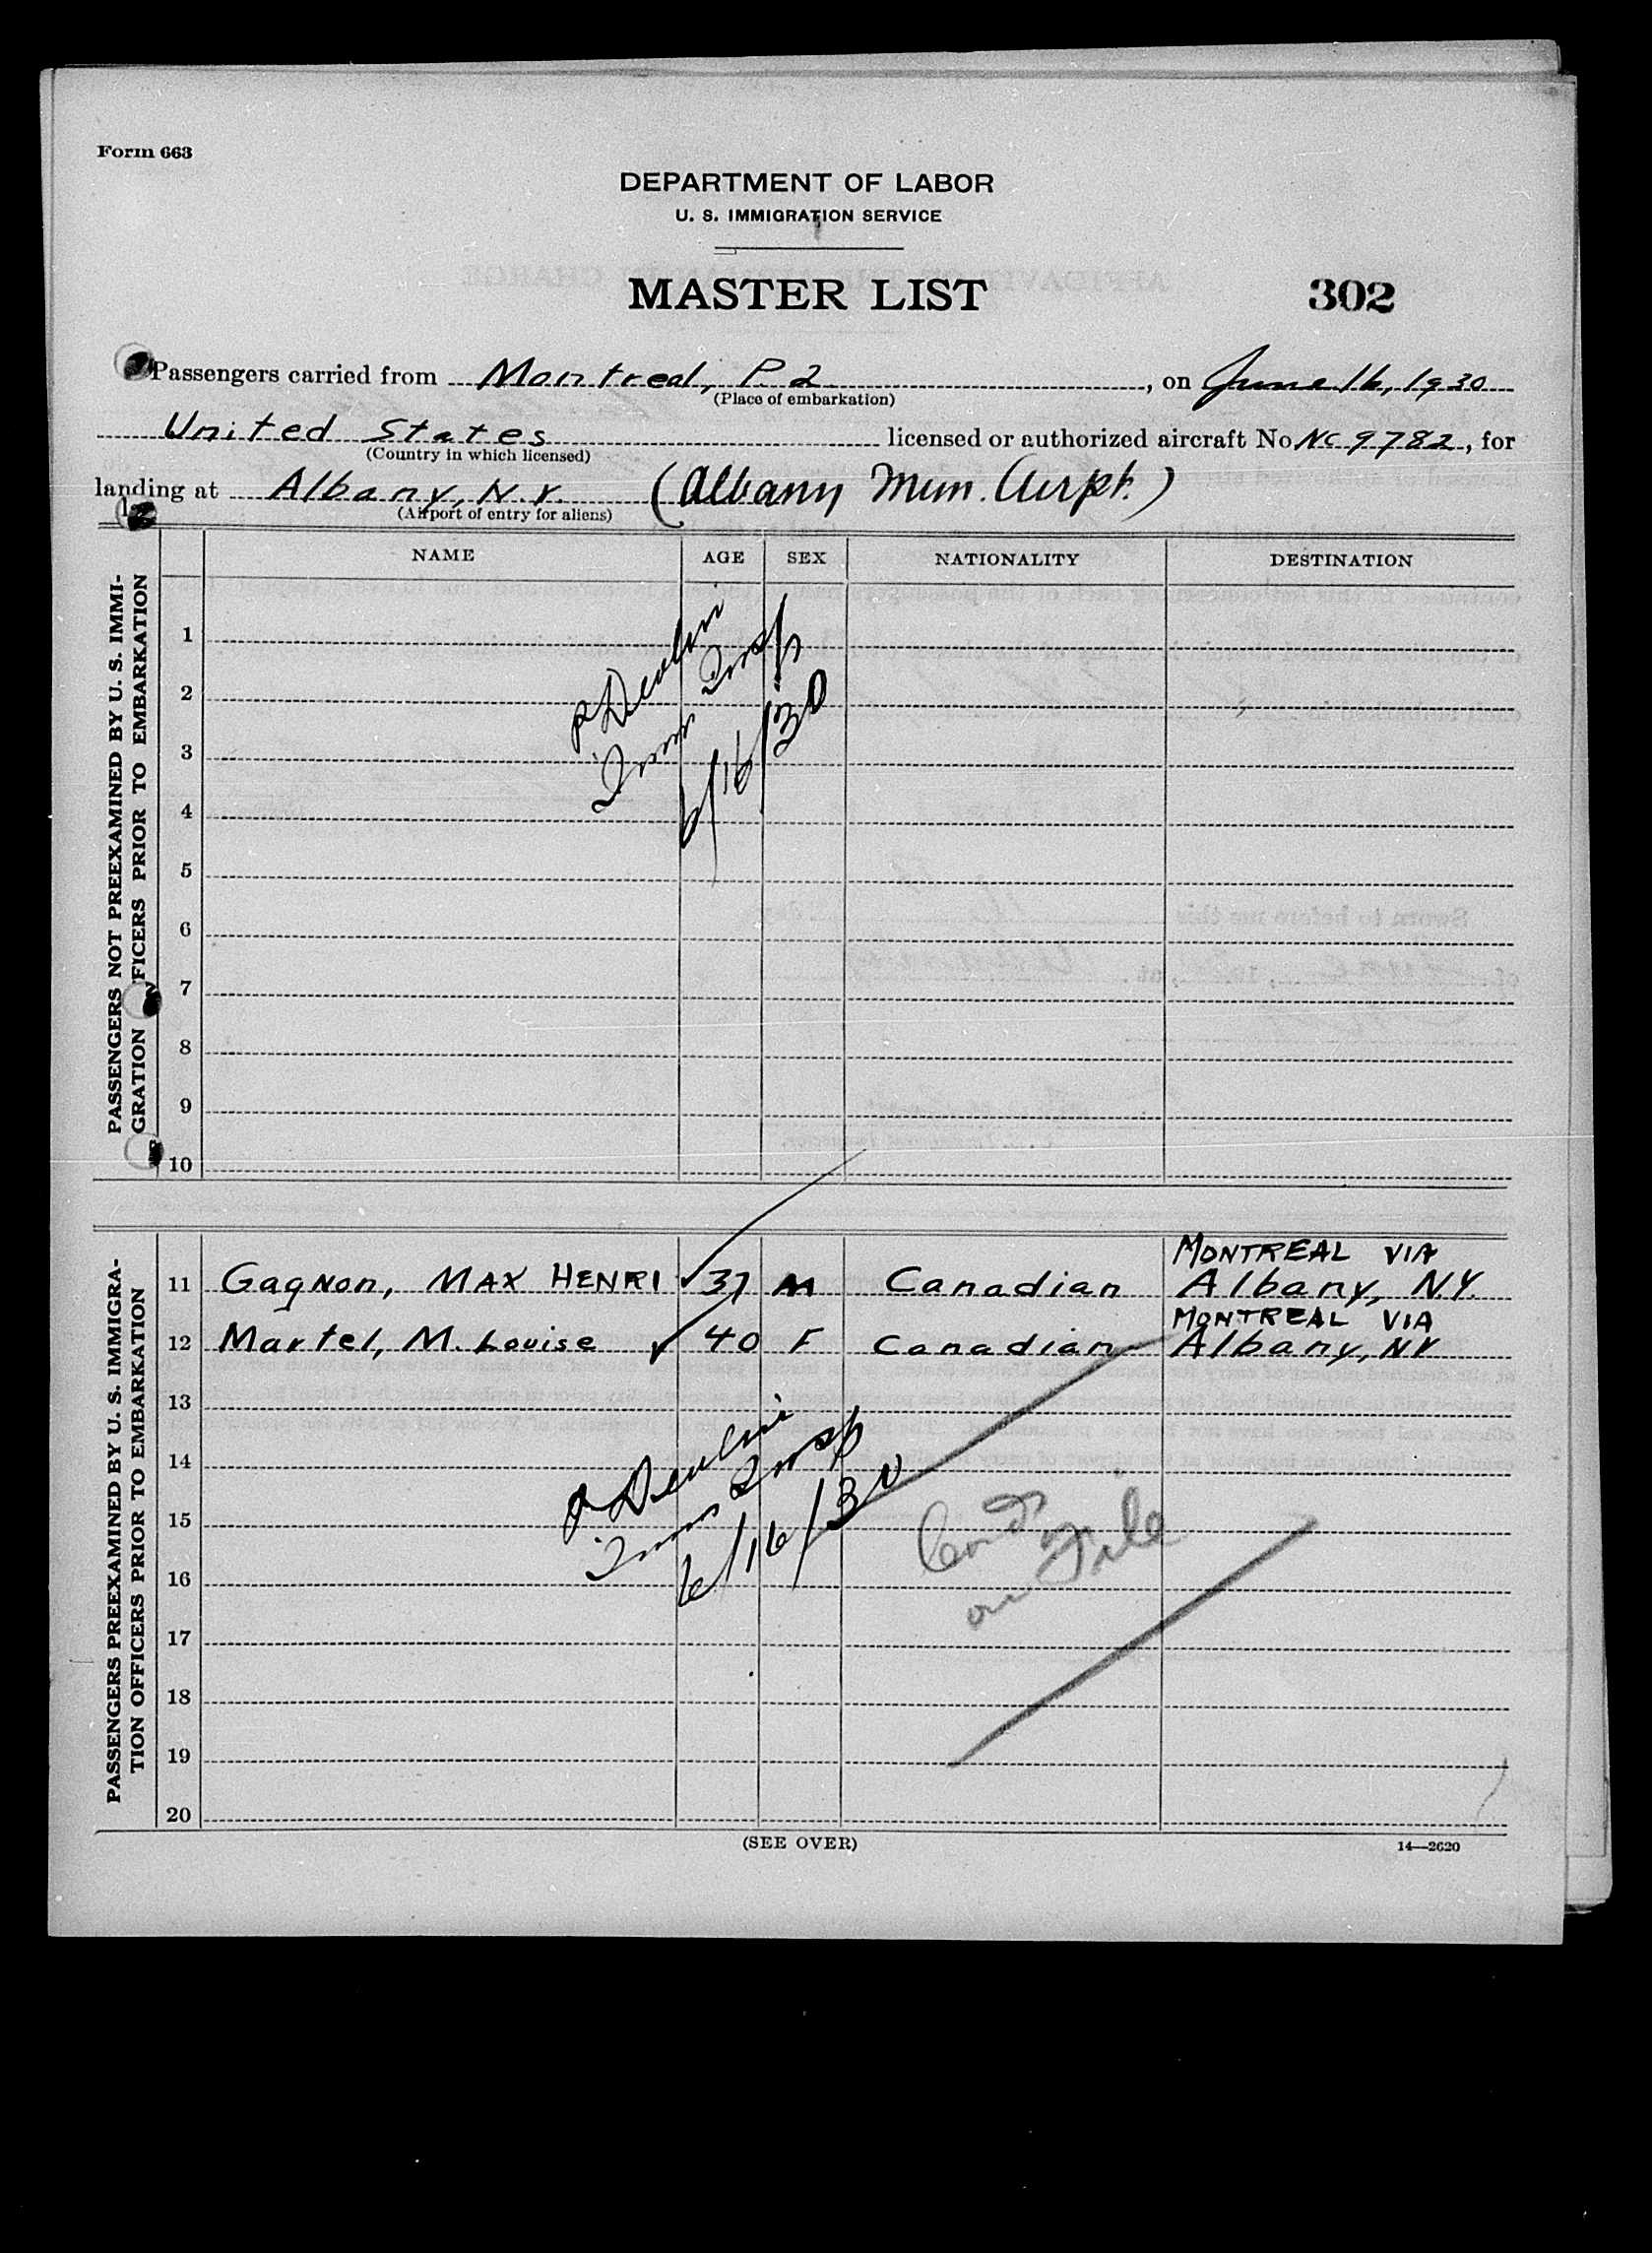 Form 663
DEPARTMENT OF LABOR
U. S. IMMIGRATION SERVICE
MASTER LIST
302
Passengers carried from Montreal, P. Q , on June 16, 1930
(Place of embarkation)
United States licensed or authorized aircraft No. NC 9782, for
(Country in which licensed)
landing at Albany, N.Y. (Albany Mun. Airpt.)
(Airport of entry for aliens)
PASSENGERS NOT PREEXAMINED BY U. S. IMMI-
GRATION OFFICERS PRIOR TO EMBARKATION
NAME AGE SEX NATIONALITY DESTINATION
1
2
3
4
5
6
7
8
9
10
P Devlin
Imm Insp
6/16/30
PASSENGERS PREEXAMINED BY U. S. IMMIGRA-
TION OFFICERS PRIOR TO EMBARKATION
MONTREAL VIA
11 Gagnon, MAX HENRI ✓ 37 M Canadian Albany, NY.
MONTREAL VIA
12 Martel, M. Louise ✓ 40 F Canadian Albany, NY
13
14
15
16
17
18
19
20
P Devlin
Imm Insp
6/16/30
on File
(SEE OVER)
14—2620